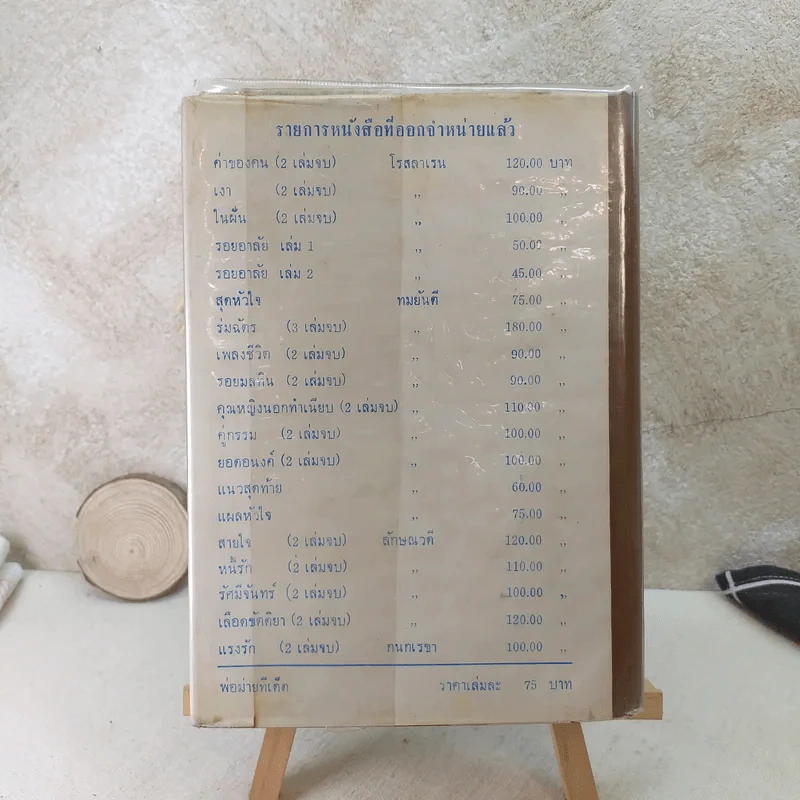 รายการหนังสือที่ออกจำหน่ายแล้ว
ค่าของคน (2 เล่มจบ) โรสลาเรน 120.00 บาท
เงา (2 เล่มจบ) ,, 90.00 ,,
ในฝัน (2 เล่มจบ) ,, 100.00 ,,
รอยอาลัย เล่ม 1 ,, 50.00 ,,
รอยอาลัย เล่ม 2 ,, 45.00 ,,
สุดหัวใจ ทมยันตี 75.00 ,,
ร่มฉัตร (3 เล่มจบ) ,, 180.00 ,,
เพลงชีวิต (2 เล่มจบ) ,, 90.00 ,,
รอยมลทิน (2 เล่มจบ) ,, 90.00 ,,
คุณหญิงนอกทำเนียบ (2 เล่มจบ) ,, 110.00 ,,
คู่กรรม (2 เล่มจบ) ,, 100.00 ,,
ยอดอนงค์ (2 เล่มจบ) ,, 100.00 ,,
แนวสุดท้าย ,, 60.00 ,,
แผลหัวใจ ,, 75.00 ,,
สายใจ (2 เล่มจบ) ลักษณวดี 120.00 ,,
หนี้รัก (2 เล่มจบ) ,, 110.00 ,,
รัศมีจันทร์ (2 เล่มจบ) ,, 100.00 ,,
เลือดขัตติยา (2 เล่มจบ) ,, 120.00 ,,
แรงรัก (2 เล่มจบ) กนกเรขา 100.00 ,,
พ่อม่ายทีเด็ด ราคาเล่มละ 75 บาท